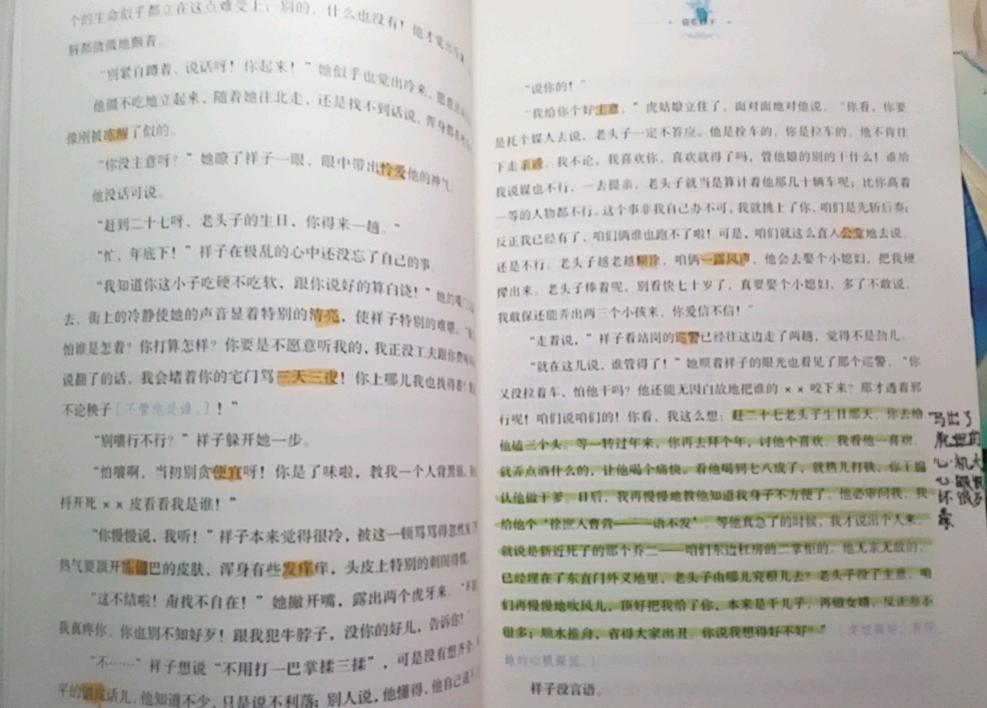 个的生命似乎都立在这点难受上；别的，什么也没有！他才觉出
唇都微微地颤着。
“别紧自蹲着，说话呀！你起来！”她似乎也觉出冷来，愿意活
他僵不吃地立起来，随着她往北走，还是找不到话说，浑身都有
像刚被冻醒了似的。
“你没主意呀？”她瞭了祥子一眼，眼中带出怜爱他的神气。
他没话可说。
“赶到二十七呀，老头子的生日，你得来一趟。”
“忙，年底下！”祥子在极乱的心中还没忘了自己的事。
“我知道你这小子吃硬不吃软，跟你说好的算白饶！”她的嗓门
去，街上的冷静使她的声音显着特别的清亮，使祥子特别的难堪。
怕谁是怎着？你打算怎样？你要是不愿意听我的，我正没工夫跟你费
说翻了的话，我会堵着你的宅门骂三天三夜！你上哪儿我也找得着！
不论秧子［不管他是谁。］！”
“别嚷行不行？”祥子躲开她一步。
“怕嚷啊，当初别贪便宜呀！你是了味啦，教我一个人背黑锅，
挦开死××皮看看我是谁！”
“你慢慢说，我听！”祥子本来觉得很冷，被这一顿骂骂得忽然发
热气要顶开冻僵巴的皮肤，浑身有些发痒痒，头皮上特别的刺闹得慌。
“这不结啦！甭找不自在！”她撇开嘴，露出两个虎牙来。“不
我真疼你，你也别不知好歹！跟我犯牛脖子，没你的好儿，告诉你！”
“不……”祥子想说“不用打一巴掌揉三揉”，可是没有想齐全
平的俏皮话儿，他知道不少，只是说不利落；别人说，他懂得，他自己说
骆驼祥子
“说你的！”
“我给你个好主意，”虎姑娘立住了，面对面地对他说，“你看，你要
是托个媒人去说，老头子一定不答应。他是拴车的，你是拉车的，他不肯往
下走亲戚。我不论，我喜欢你，喜欢就得了吗，管他娘的别的干什么！谁给
我说媒也不行，一去提亲，老头子就当是算计着他那几十辆车呢；比你高着
一等的人物都不行。这个事非我自己办不可，我就挑上了你，咱们是先斩后奏；
反正我已经有了，咱们俩谁也跑不了啦！可是，咱们就这么直入公堂地去说，
还是不行。老头子越老越糊涂，咱俩一露风声，他会去娶个小媳妇，把我硬
撵出来。老头子棒着呢，别看快七十岁了，真要娶个小媳妇，多了不敢说，
我敢保还能弄出两三个小孩来，你爱信不信！”
“走着说，”祥子看站岗的巡警已经往这边走了两趟，觉得不是劲儿。
“就在这儿说，谁管得了！”她顺着祥子的眼光也看见了那个巡警，“你
又没拉着车，怕他干吗？他还能无因白故地把谁的××咬下来？那才透着邪
行呢！咱们说咱们的！你看，我这么想：赶二十七老头子生日那天，你去给
他磕三个头。等一转过年来，你再去拜个年，讨他个喜欢。我看他一喜欢，
就弄点酒什么的，让他喝个痛快。看他喝到七八成了，就热儿打铁，你干脆
认他做干爹。日后，我再慢慢地教他知道我身子不方便了。他必审问我，我
给他个‘徐庶入曹营——一语不发’。等他真急了的时候，我才说出个人来，
就说是新近死了的那个乔二——咱们东边杠房的二掌柜的。他无亲无故的，
已经埋在了东直门外义地里，老头子由哪儿究根儿去？老头子没了主意，咱
们再慢慢地吹风儿，顶好把我给了你，本来是干儿子，再做女婿，反正差不
很多；顺水推舟，省得大家出丑。你说我想得好不好？”
她的心机深沉。］
祥子没言语。
写出了
虎妞的
心机大
心眼很
坏很歹